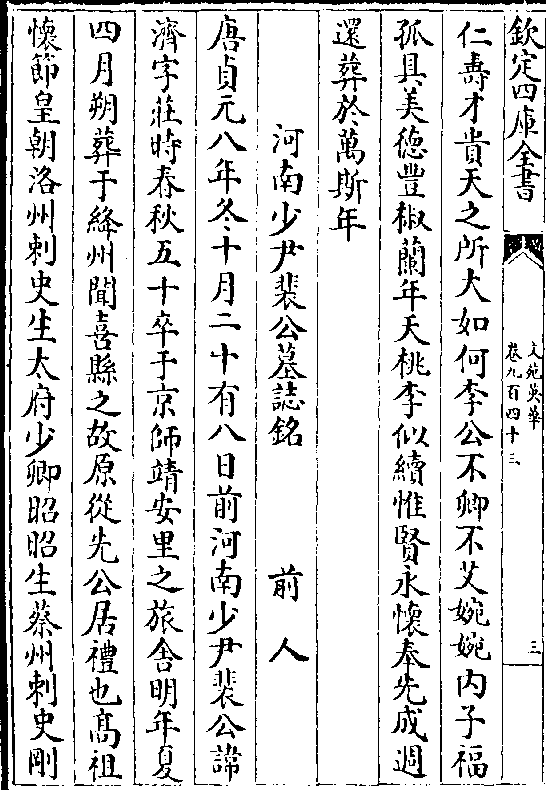 欽定四庫全書
文苑英華
卷九百四十三
三
仁壽才貴天之所大如何李公不卿不艾婉婉内子福
孤具美徳豐椒蘭年夭桃李似續惟賢永懷奉先成週
還葬於萬斯年
河南少尹裴公墓誌銘　前人
唐貞元八年冬十月二十有八日前河南少尹裴公諱
濟字莊時春秋五十卒于京師靖安里之旅舍明年夏
四月朔葬于絳州聞喜縣之故原從先公居禮也髙祖
懷節皇朝洛州刺史生太府少卿昭昭生蔡州刺史剛